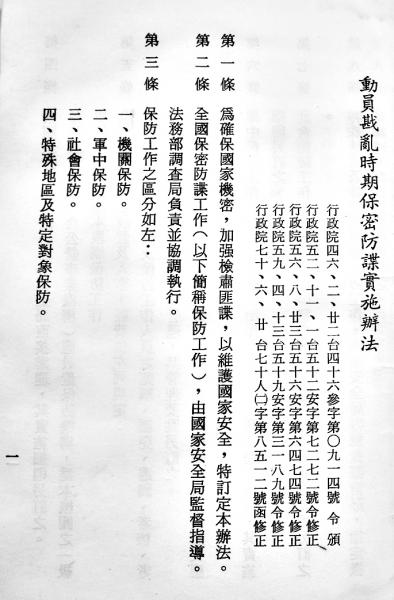 動員戡亂時期保密防諜實施辦法
行政院四六、二、廿二台四十六參字第〇九一四號令頒
行政院五二、十一、一台五十二安字第七二七二號令修正
行政院五六、八、廿三台五十六安字第六四七四號令修正
行政院五九、四、十三台五十九安字第三一八九號令修正
行政院七十、六、廿台七十人㈡字第八五一二號函修正
第一條　為確保國家機密，加强檢肅匪諜，以維護國家安全，特訂定本辦法。
第二條　全國保密防諜工作（以下簡稱保防工作），由國家安全局監督指導。
法務部調查局負責並協調執行。
第三條　保防工作之區分如左：
一、機關保防。
二、軍中保防。
三、社會保防。
四、特殊地區及特定對象保防。
一